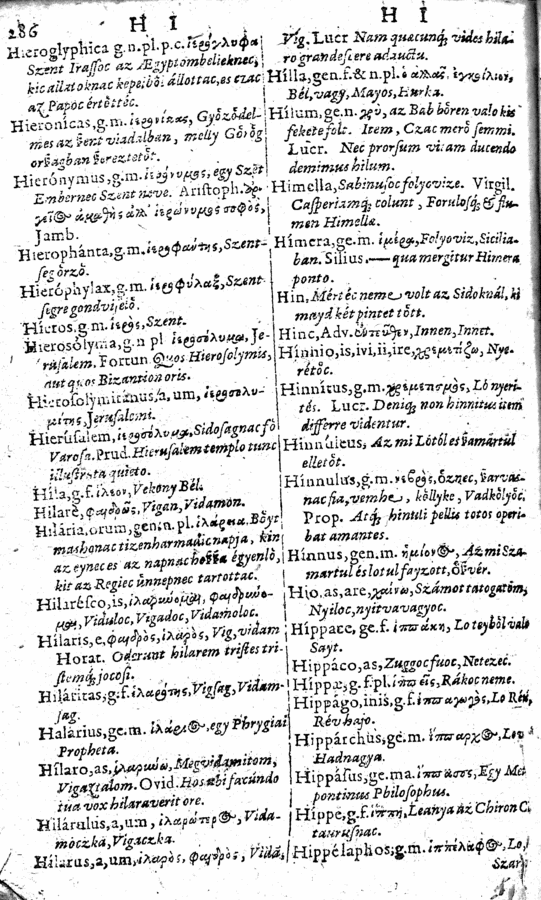 286 H I
Hieroglyphica g.n.pl.p.c. ἱερόγλυφα
Szent Irassoc az Ægyptombelieknec,
kic allatoknac kepeiből állottac, es czac
az Papoc értöttéc.
Hieronícas, g.m. ἱερονίκας, Győződel-
mes az ſzent viadalban, melly Görög
orſzagban ſzereztetőt.
Hierónymus, g.m. ἱερώνυμος, egy Szēt
Embernec Szent neve. Aristoph.
ἀμαθὴς ἱερώνυμος σοφὸς,
Jamb.
Hierophánta, g.m. ἱεροφάντης, Szent-
ſeg örző.
Hieróphylax, g.m. ἱεροφύλαξ, Szent
ſegre gondviſelő.
Híeros, g.m. ἱερὸς, Szent.
Hierosólyma, g.n pl ἱεροσόλυμα, Je-
ruſalem. Fortun Quos Hierosolymis,
aut quos Bizantion oris.
Hierosolymitánus, a, um, ἱεροσολυ-
μίτης, Jeruſalemi.
Hierúsalem, ἱεροσόλυμα, Sidosagnac fő
Varoſa. Prud. Hierusalem templo tunc
illustrata quieto.
Híla, g.f. ἵλεον, Vekony Bél.
Hílarè, φαιδρῶς, Vigan, Vidamon.
Hilária, orum, gen. n. pl. ἱλάρεια. Bőyt
mashonac tizenharmadic napja, kin
az eynec es az napnac hoſſza egyenlő,
kit az Regiec ünnepnec tartottac.
Hilarésco, is, ἱλαρύνομαι, φαιδρύνο-
μαι, Viduloc, Vigadoc, Vidamoloc.
Hílaris, e, φαιδρὸς, ἱλαρὸς, Vig, vidam
Horat. Oderunt hilarem tristes tri-
stemq; jocosi.
Hiláritas, g.f. ἱλαρότης, Vigſag, Vidam-
ſag.
Halárius, ge.m. egy Phrygiai
Propheta.
Hílaro, as, ἱλαρύνω, Megvidamitom,
Vigaztalom. Ovid. Hos ubi facundo
tua vox hilaraverit ore.
Hilárulus, a, um, Vida-
moczka, Vigaczka.
Hílarus, a, um, ἱλαρὸς, φαιδρὸς,
H I
Vig. Lucr Nam quæcunq; vides hila-
ro grandescere adauctu.
Hílla, gen. f. & n. pl.
Bél, vagy, Mayos, Hurka.
Hílum, ge.n. az Bab bőren valo kis
fekete folt. Item, Czac merő ſemmi.
Lucr. Nec prorsum vitam ducendo
demimus hilum.
Himella, Sabinuſoc folyovize. Virgil.
Casperiamq; colunt, Forulosq; & flu-
men Himellæ.
Hímera, ge.m. ἱμέρα, Folyoviz, Sicilia-
ban. Silius. — qua mergitur Himera
ponto.
Hin, Mérték neme volt az Sidoknál, ki
mayd két pintet tött.
Hinc, Adv. ἐντεῦθεν, Innen, Innet.
Hínnio, is, ivi, ii, ire, χρεμετίζω, Nye-
rétőc.
Hinnítus, g.m. χρεμετισμὸς, Ló nyeri-
tés. Lucr. Deniq; non hinnitus item
differre videntur.
Hinnúleus, Az mi Lótól es ſzamártúl
elletőt.
Hínnulus, g.m. νεβρὸς, őznec, ſzarvas-
nac fia, vemhe, kőllyke, Vadkőlyőc.
Prop. Atq; hinuli pellis totos operi-
bat amantes.
Hínnus, gen. m. Az mi Sza-
martul és lotul fayzott, őſzvér.
Hio, as, are, χαίνω, Számot tatogatom,
Nyiloc, nyitva vagyoc.
Híppace, ge. f. ἱππάκη, Lo teyből valo
Sayt.
Hippáco, as, Zuggoc fuoc, Netezec.
Híppæ, g.f.pl. Rákoc neme.
Hippágo, inis, g.f. ἱππαγωγὸς, Lo Rév,
Rév hajo.
Hippárchus, ge.m. Lov
Hadnagya.
Hippásus, ge.ma. ἵππασος, Egy Met
pontinus Philosophus.
Híppe, g.f. ἵππη, Leanya az Chiron C.
taurusnac.
Hippélaphos, g.m. Lo,
Szar-